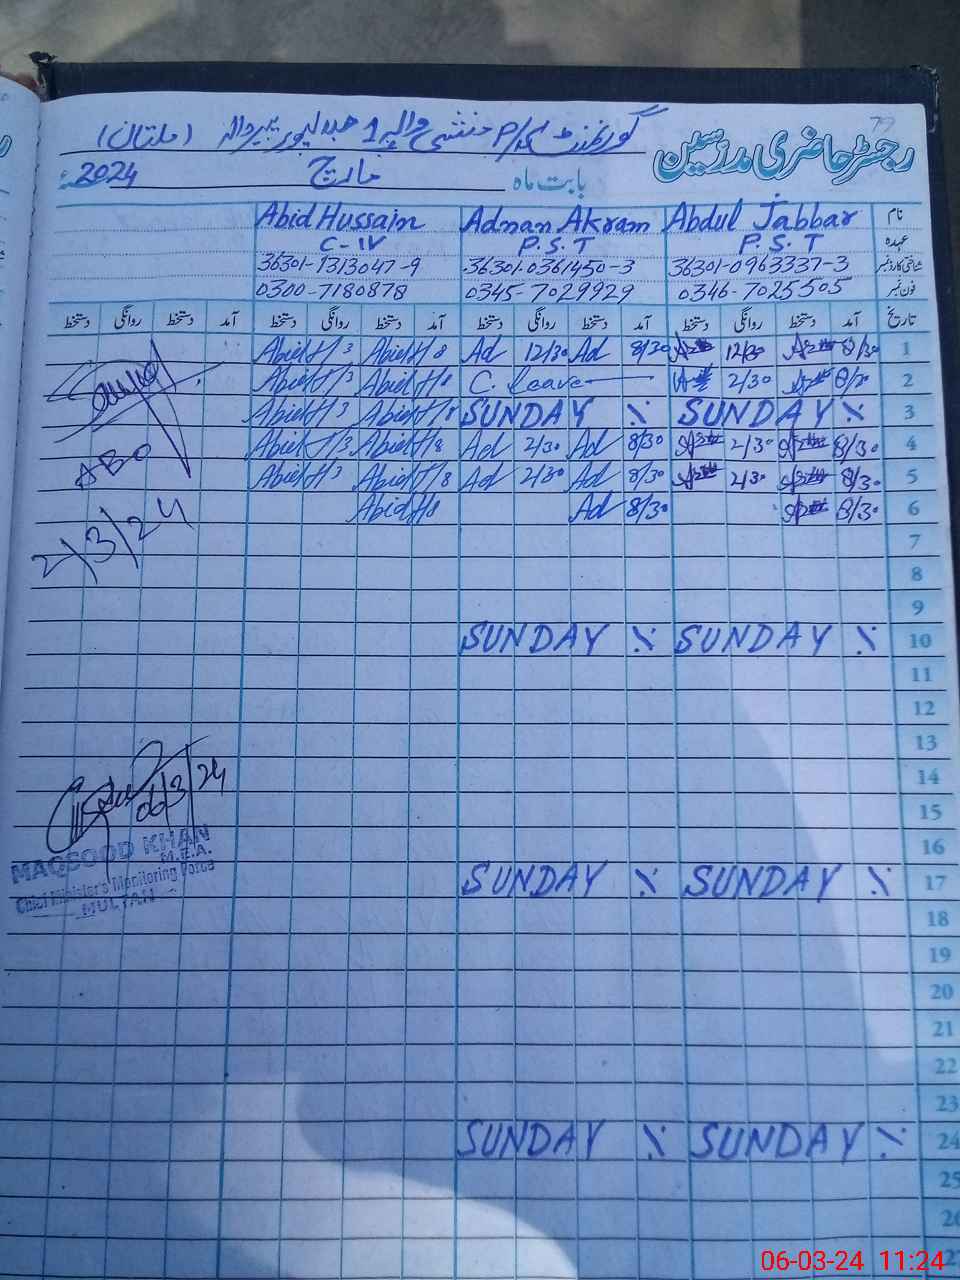 79
رجسٹر حاضری مدرسین
گورنمنٹ P/S منشی والہ 1 جلالپور پیروالہ (ملتان)
بابت ماہ مارچ 2024ء
نام Abdul Jabbar Adnan Akram Abid Hussain
عہدہ P.S.T P.S.T C-IV
شناختی کارڈ نمبر 36301-0963337-3 36301-0361450-3 36301-1313047-9
فون نمبر 0346-7025505 0345-7029929 0300-7180878
تاریخ آمد دستخط روانگی دستخط آمد دستخط روانگی دستخط آمد دستخط روانگی دستخط آمد دستخط روانگی دستخط
1 8/30 12/30 8/30 Ad 12/30 Ad 8 Abid H 3 Abid H
2 8/30 2/30 C. leave 8 Abid H 3 Abid H
3 SUNDAY SUNDAY 8 Abid H 3 Abid H
4 8/30 2/30 8/30 Ad 2/30 Ad 8 Abid H 3 Abid H
5 8/30 2/30 8/30 Ad 2/30 Ad 8 Abid H 3 Abid H
6 8/30 8/30 Ad 8 Abid H
7
8
9
10 SUNDAY SUNDAY
11
12
13
14
15
16
17 SUNDAY SUNDAY
18
19
20
21
22
23
24 SUNDAY SUNDAY
25
26
27
AEO
2/3/24
06/3/24
MAQSOOD KHAN
M.E.A.
Chief Minister's Monitoring Force
MULTAN
06-03-24 11:24